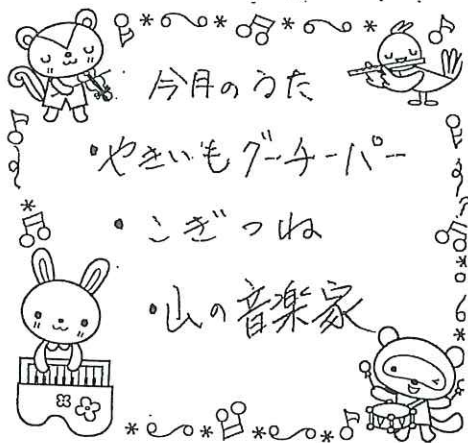 今月のうた
・やきいもグーチーパー
・こぎつね
・山の音楽家